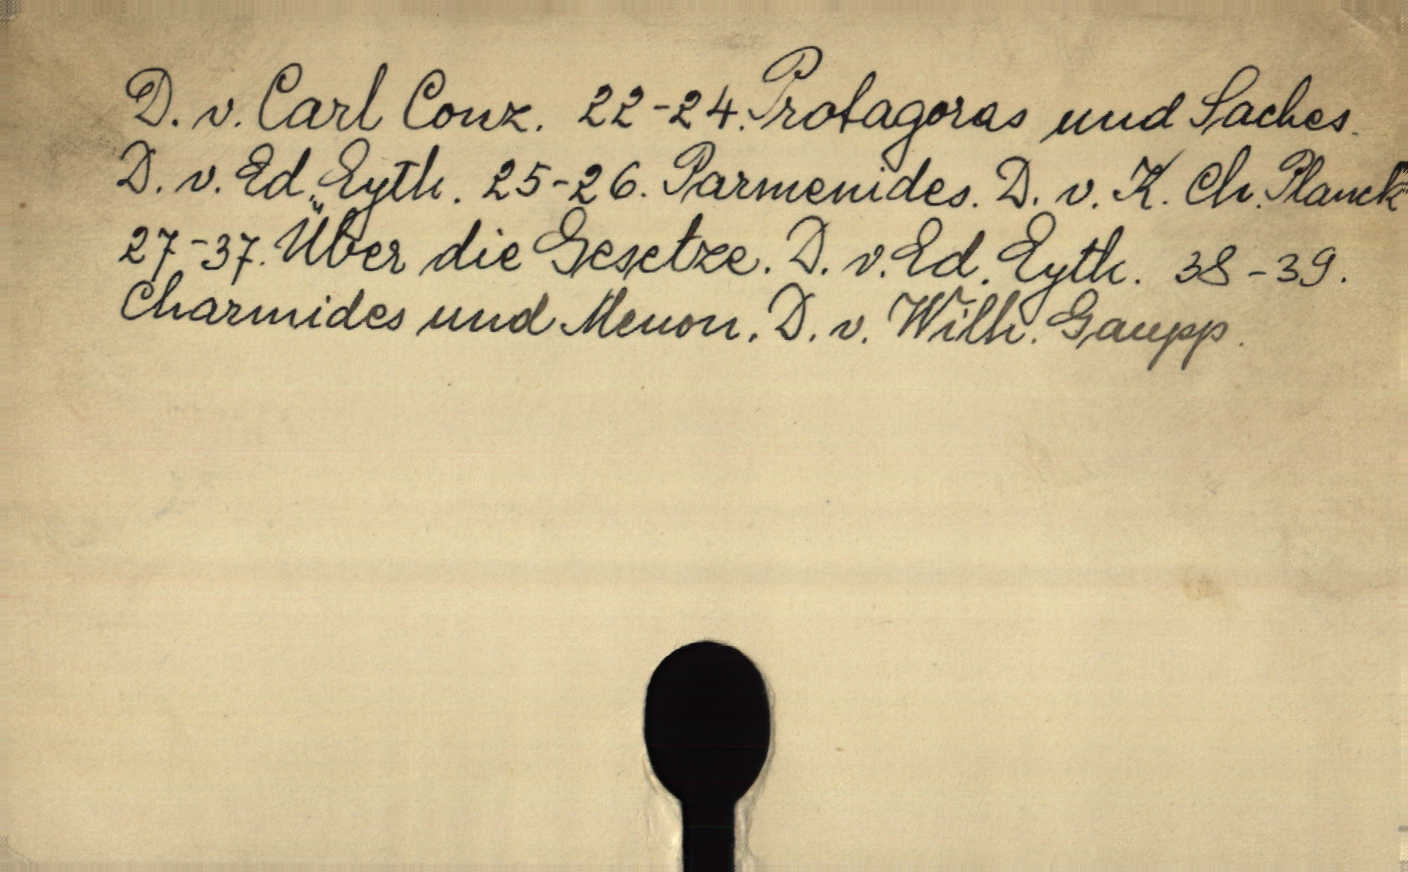 D. v. Carl Conz. 22-24. Protagoras und Laches.
D. v. Ed. Eyth. 25-26. Parmenides. D. v. K. Ch. Planck
27-37. Über die Gesetze. D. v. Ed. Eyth. 38-39.
Charmides und Menon. D. v. Wilh. Gaupp.